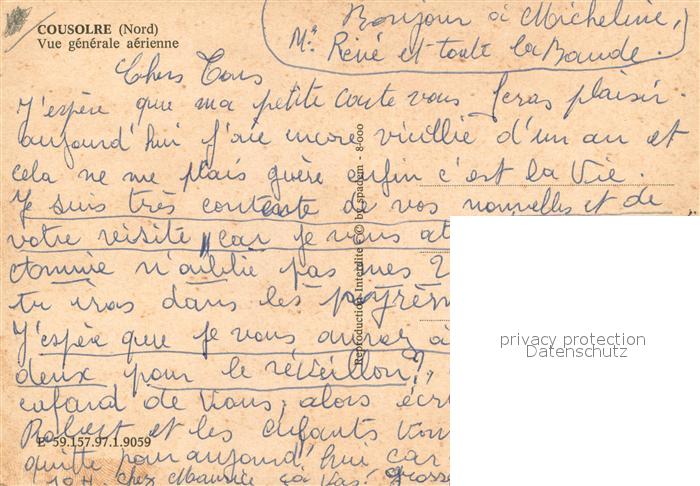 COUSOLRE (Nord)
Vue générale aérienne
Bonjour à Micheline,
Mr René et toute la Bande.
Chers Tous
J'espère que ma petite carte vous feras plaisir.
aujourd'hui j'aie encore vieillie d'un an et
cela ne me plais guère enfin c'est la Vie.
Je suis très contente de vos nouvelles et de
votre visite car je vous at
n'oublie pas mes 2
tu iras dans les
J'espère que je vous aurez à
deux pour le réveillon?,
cafard de vous, alors écri
Robert et les enfants vont
quitte pour aujourd'hui car
chez Maurice ça vas grosse
E 59.157.97.1.9059
Reproduction Interdite - © by spadem - 8-000
privacy protection
Datenschutz